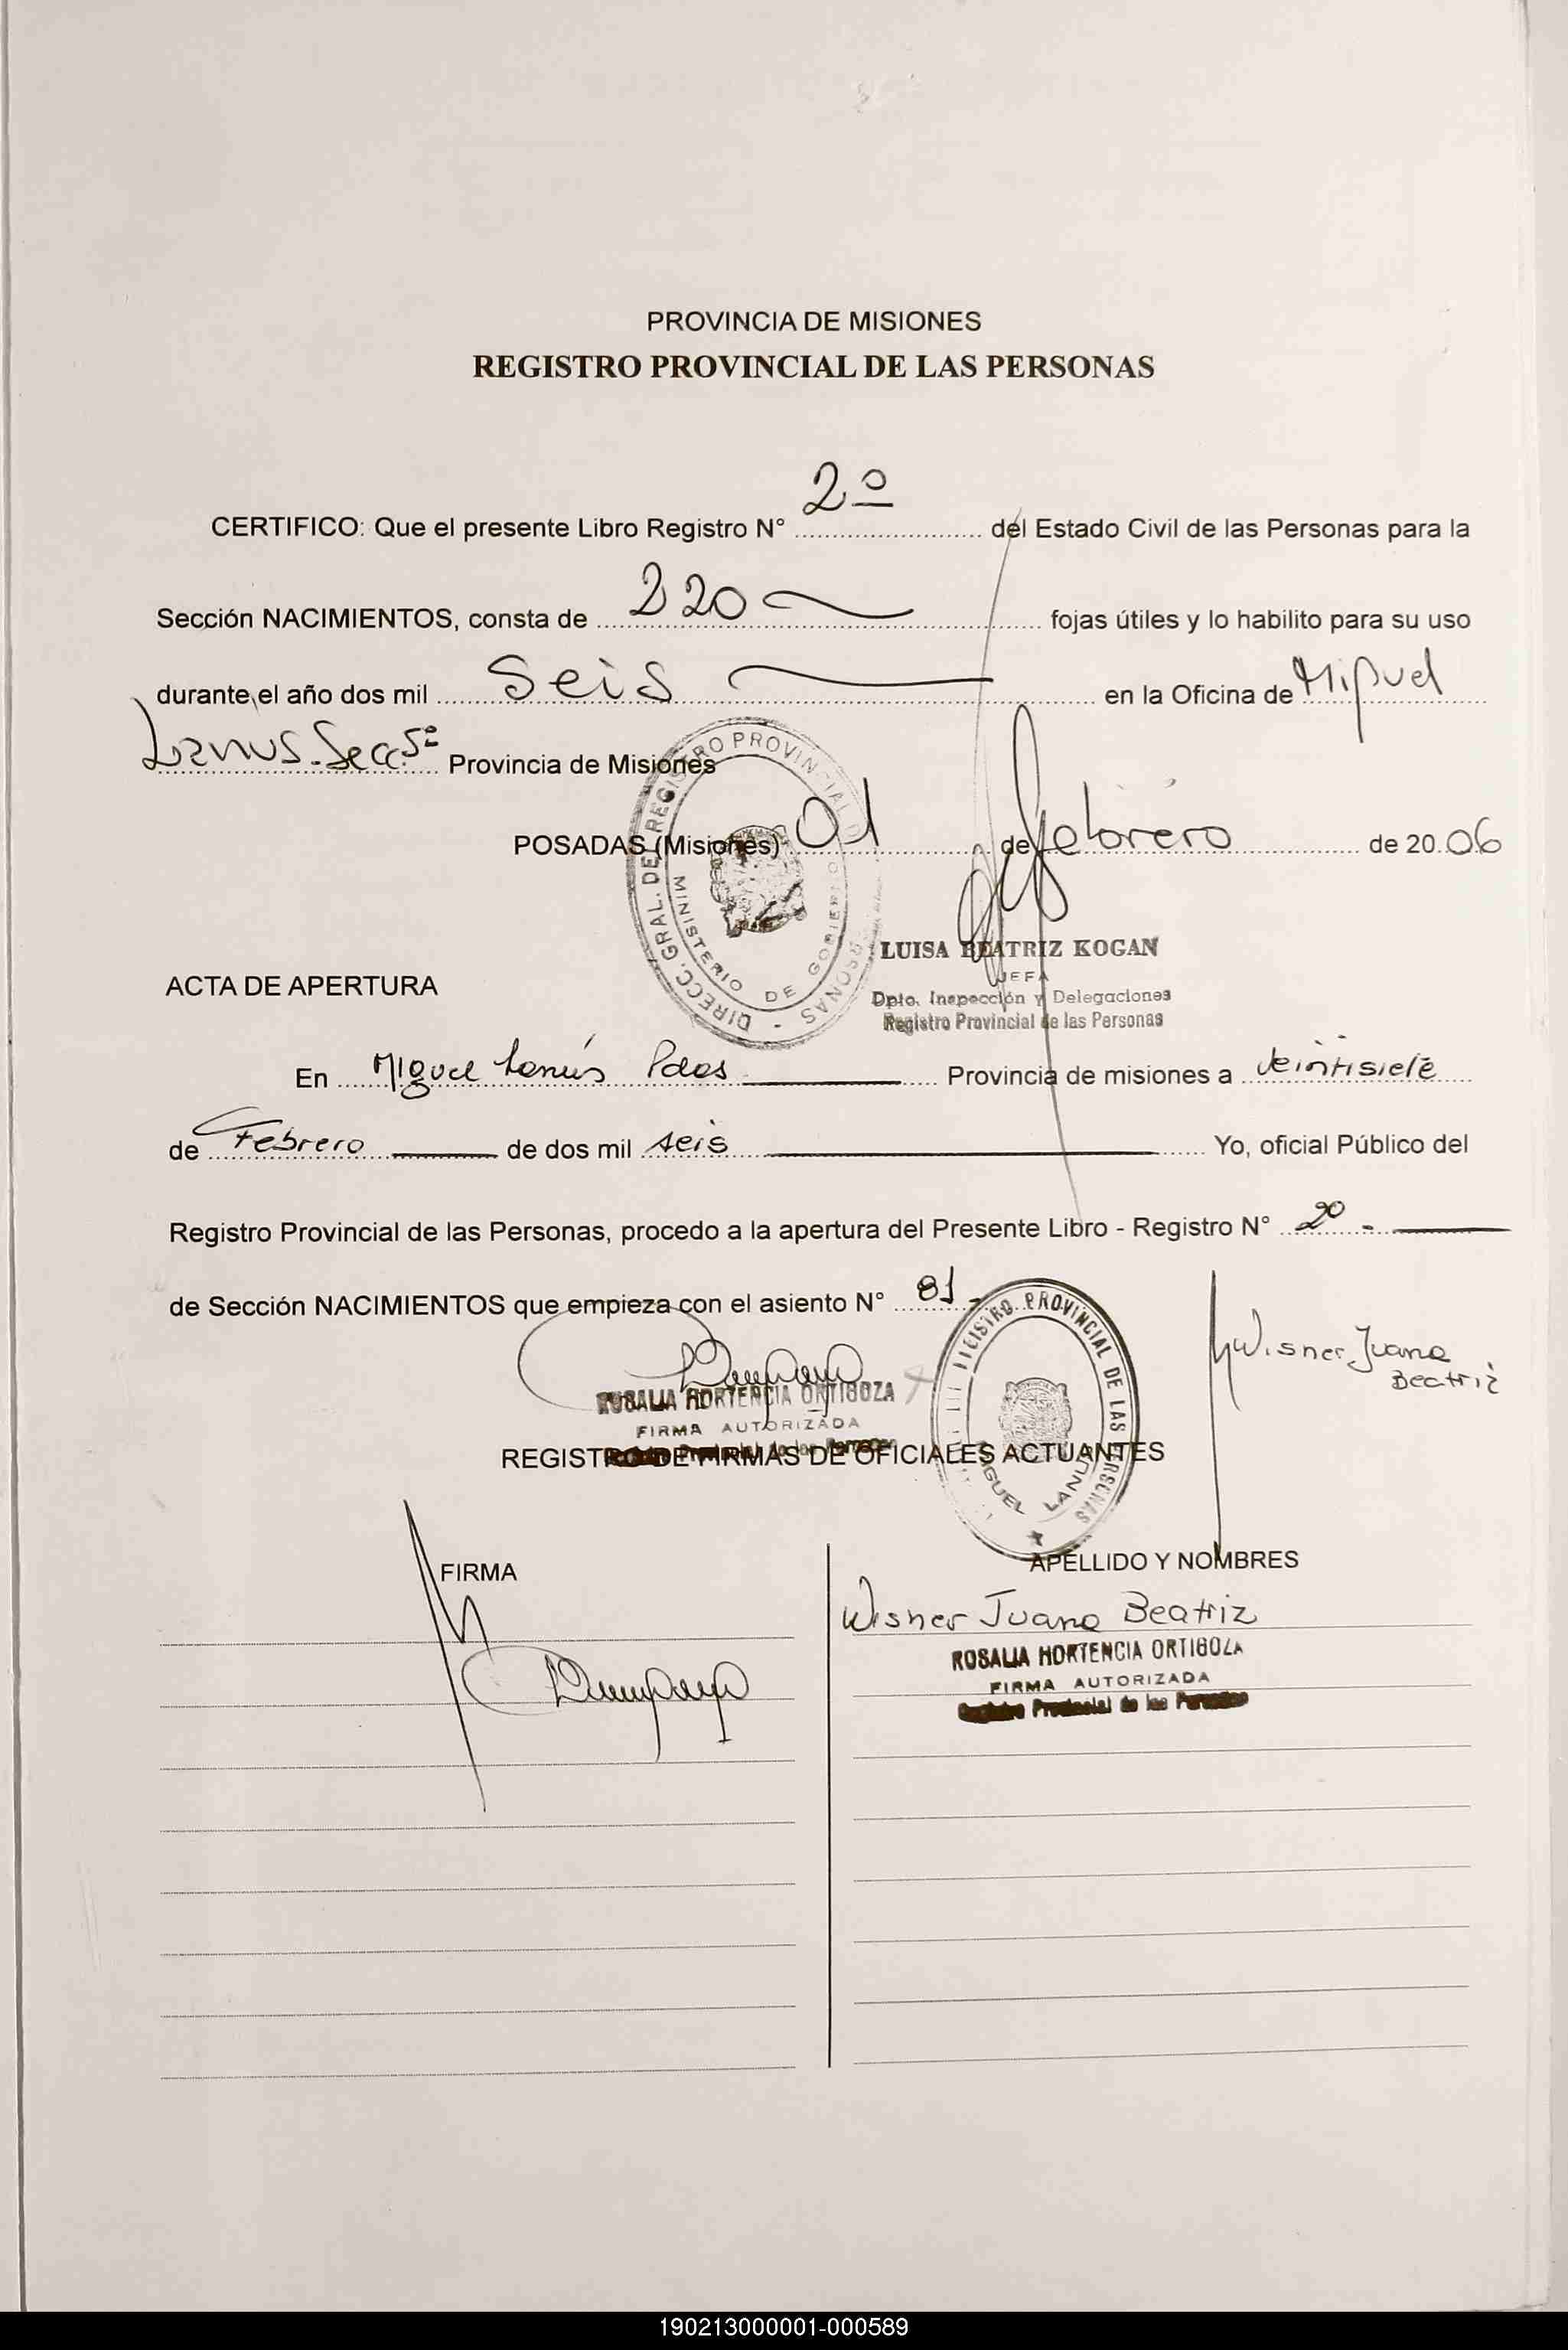 PROVINCIA DE MISIONES
REGISTRO PROVINCIAL DE LAS PERSONAS
CERTIFICO: Que el presente Libro Registro N° 2º del Estado Civil de las Personas para la
Sección NACIMIENTOS, consta de 220 fojas útiles y lo habilito para su uso
durante el año dos mil Seis en la Oficina de Miguel
Lanus-Secc 5ª Provincia de Misiones
DIRECC. GRAL. DEL REGISTRO PROVINCIAL DE PERSONAS
MINISTERIO DE GOBIERNO
POSADAS (Misiones) 01 de febrero de 2006
LUISA BEATRIZ KOGAN
JEFA
Dpto. Inspección y Delegaciones
Registro Provincial de las Personas
ACTA DE APERTURA
En Miguel Lanús Pdas Provincia de misiones a veintisiete
de Febrero de dos mil seis Yo, oficial Público del
Registro Provincial de las Personas, procedo a la apertura del Presente Libro - Registro N° 2º -
de Sección NACIMIENTOS que empieza con el asiento N° 81-
REGISTRO PROVINCIAL DE LAS PERSONAS
MIGUEL LANUS
Wisner Juana
Beatriz
ROSALIA HORTENCIA ORTIGOZA
FIRMA AUTORIZADA
Registro Provincial de las Personas
REGISTRO DE FIRMAS DE OFICIALES ACTUANTES
FIRMA
APELLIDO Y NOMBRES
Wisner Juana Beatriz
ROSALIA HORTENCIA ORTIGOZA
FIRMA AUTORIZADA
Registro Provincial de las Personas
190213000001-000589